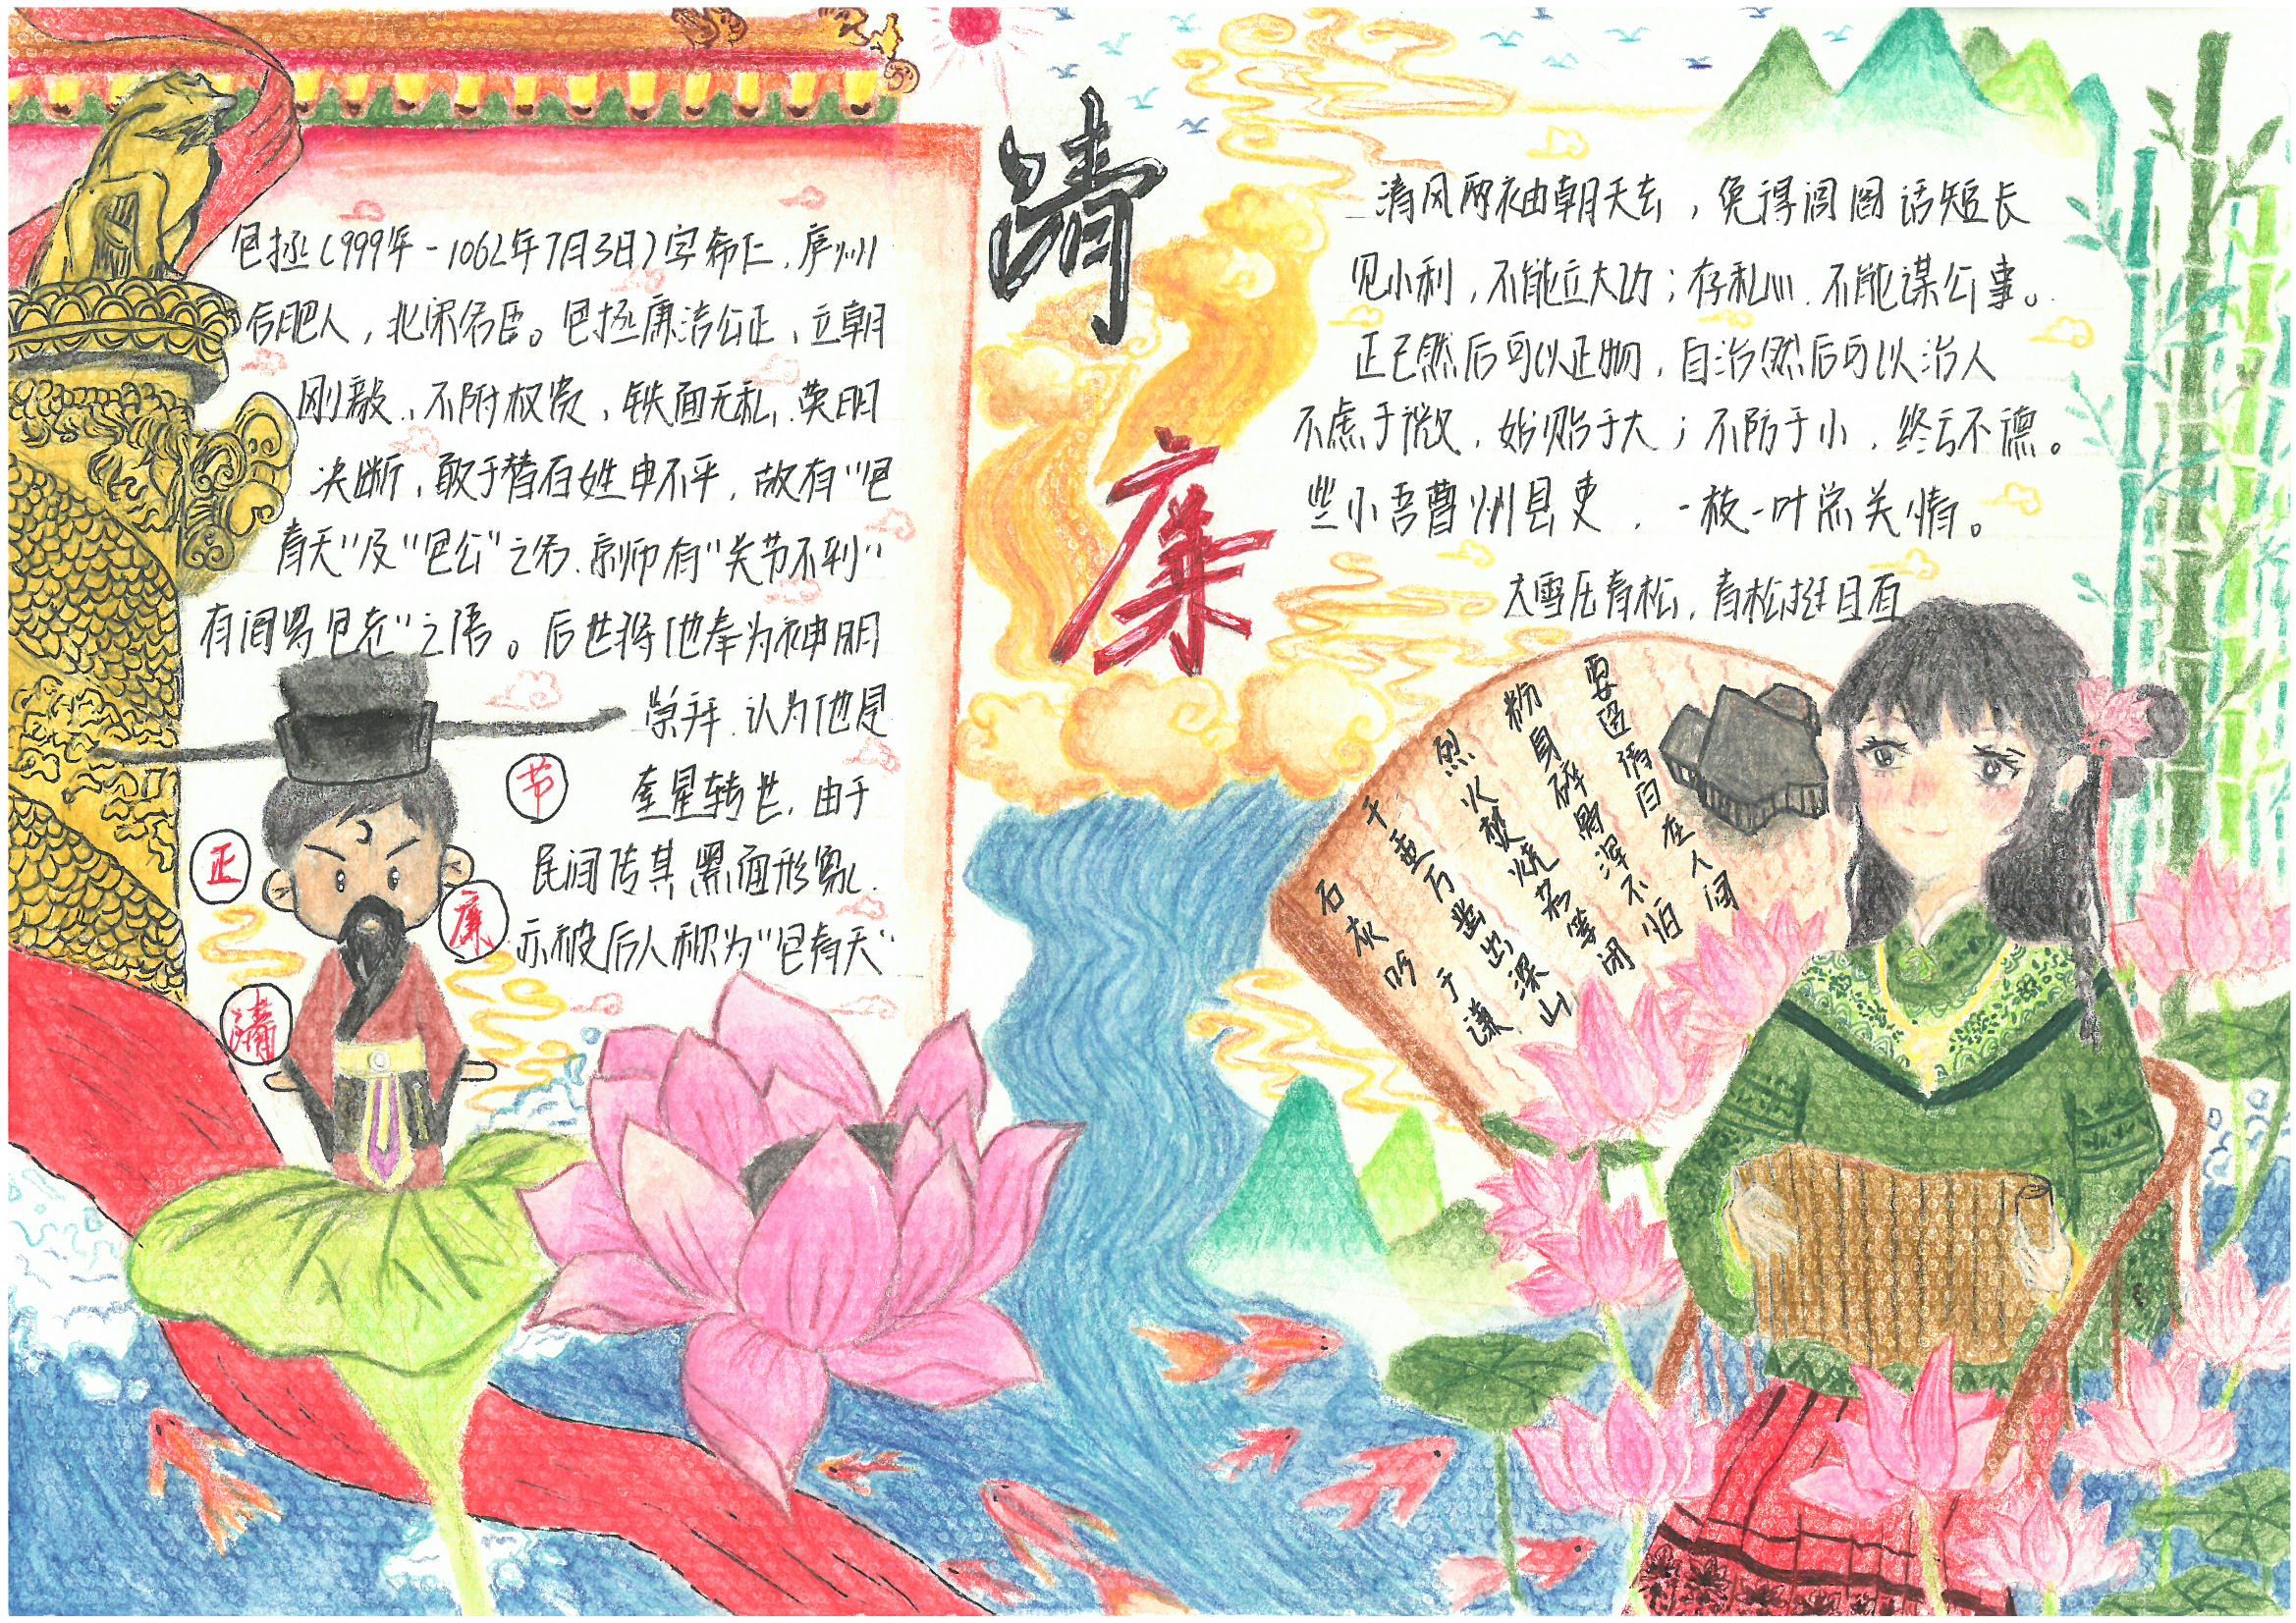 包拯(999年-1062年7月3日)字希仁,庐州
合肥人,北宋名臣。包拯廉洁公正、立朝
刚毅,不附权贵,铁面无私,英明
决断,敢于替百姓申不平,故有"包
青天"及"包公"之名,京师有"关节不到"
有阎罗包老"之语。后世将他奉为神明
崇拜.认为他是
奎星转世,由于
民间传其黑面形象,
亦被后人称为"包青天"
节
正
廉
清
清
廉
清风两袖朝天去,免得阎阎话短长
见小利,不能立大功;存私心,不能谋公事。
正己然后可以正物,自治然后可以治人
不虑于微,始贻于大;不防于小,终亏不德。
些小吾曹州县吏,一枝一叶总关情。
大雪压青松,青松挺且直
石灰吟 于谦
千垂万凿出深山
烈火焚烧若等闲
粉身碎骨浑不怕
要留清白在人间